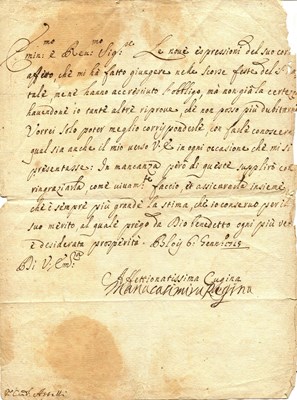 Em:mo e Reu:mo Sig:re Le noue espressioni del suo cor:
affetto, che mi hà fatto giungere nelle scorse feste del S.
tale m'hanno accresciuto l'obligo, mà non già la certe
hauendone io tante altre riproue, che non posso più dubitarne
Vorrei solo poter meglio corrispondele, con farle conoscere
qual sia anche il mio uerso V. E. in ogni occasione che mi si
presentasse: In mancanza però di queste supplirò col
ringratiarla come uiuam:te faccio, et assicurarla insieme
che è sempre più grande la stima, che io conseruo per il
suo merito al quale prego da Dio benedetto ogni più ve
e desiderata prosperità. Bloys 6: Genn: 1715
Di V. Em:za
Affettionatissima Cugina
Maria Casimira Regina
Card: Astalli